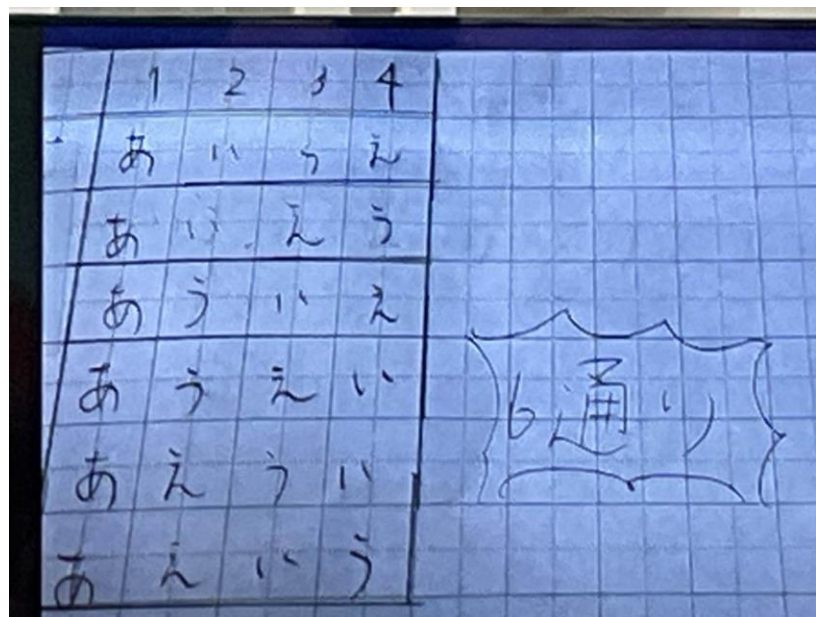 1 2 3 4
あ い う え
あ い え う
あ う い え
あ う え い
あ え う い
あ え い う
6通り